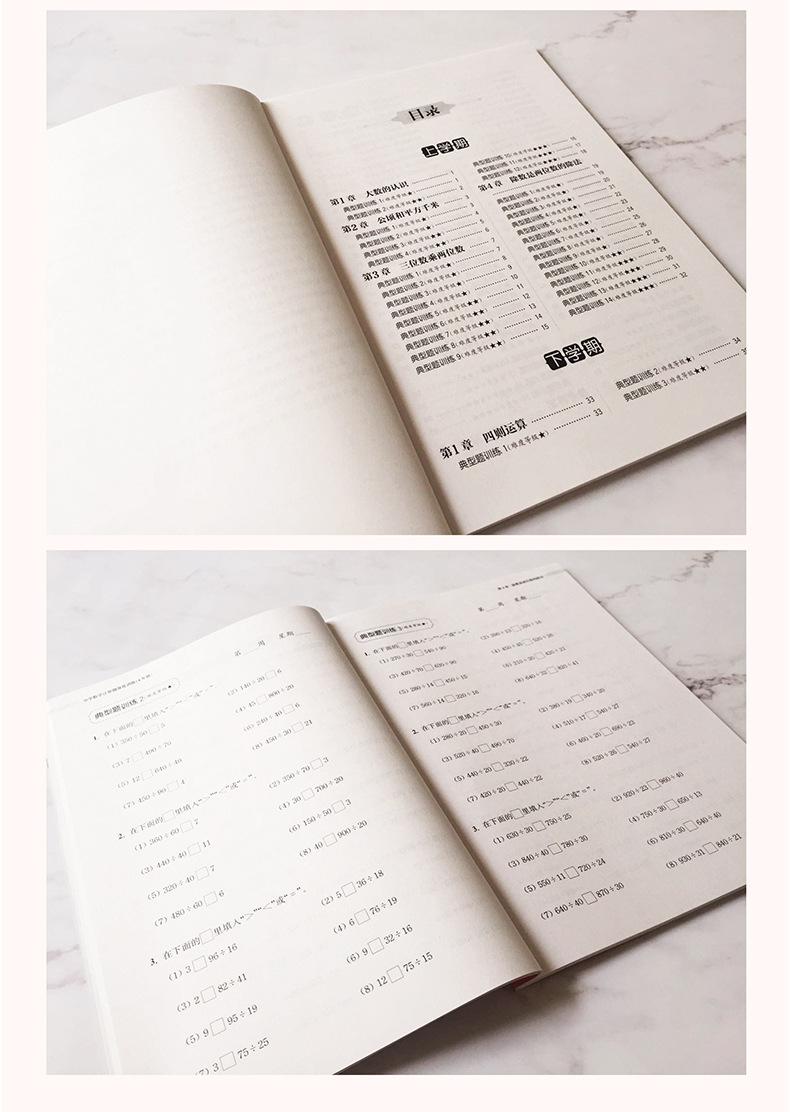 目录
上学期
第1章 大数的认识 1
典型题训练 1(难度等级★) 1
典型题训练 2(难度等级★★) 2
第2章 公顷和平方千米 3
典型题训练 1(难度等级★)
典型题训练 2(难度等级★)
典型题训练 3(难度等级★★)
典型题训练 4(难度等级★★)
第3章 三位数乘两位数 7
典型题训练 1(难度等级★)
典型题训练 2(难度等级★)
典型题训练 3(难度等级★)
典型题训练 4(难度等级★★)
典型题训练 5(难度等级★★)
典型题训练 6(难度等级★★)
典型题训练 7(难度等级★★)
典型题训练 8(难度等级★★)
典型题训练 9(难度等级★★) 15
典型题训练 10(难度等级★★★) 16
典型题训练 11(难度等级★★★) 17
典型题训练 12(难度等级★★★) 18
第4章 除数是两位数的除法 19
典型题训练 1(难度等级★)
典型题训练 2(难度等级★)
典型题训练 3(难度等级★)
典型题训练 4(难度等级★)
典型题训练 5(难度等级★)
典型题训练 6(难度等级★★)
典型题训练 7(难度等级★★)
典型题训练 8(难度等级★★)
典型题训练 9(难度等级★★)
典型题训练 10(难度等级★★)
典型题训练 11(难度等级★★)
典型题训练 12(难度等级★★★)
典型题训练 13(难度等级★★★)
典型题训练 14(难度等级★★★) 32
下学期
第1章 四则运算 33
典型题训练 1(难度等级★) 33
典型题训练 2(难度等级★) 34
典型题训练 3(难度等级★★)
第 周 星期
典型题训练 2(难度等级★)
1. 在下面的□里填入“>”“<”或“=”。
(1) 350÷50□5 (2) 140÷20□6
(3) 7□490÷70 (4) 45□800÷20
(5) 12□640÷40 (6) 240÷40□6
(7) 450÷90□4 (8) 450÷30□21
2. 在下面的□里填入“>”“<”或“=”。
(1) 360÷60□7 (2) 350÷70□3
(3) 440÷40□11 (4) 30□700÷20
(5) 320÷40□7 (6) 150÷50□3
(7) 480÷60□6 (8) 40□900÷20
3. 在下面的□里填入“>”“<”或“=”。
(1) 3□96÷16 (2) 5□36÷18
(3) 2□82÷41 (4) 6□76÷19
(5) 9□95÷19 (6) 9□32÷16
(7) 3□75÷25 (8) 12□75÷15
第 周 星期
典型题训练 3(难度等级★)
1. 在下面的□里填入“>”“<”或“=”。
(1) 270÷30□540÷90
(3) 420÷70□630÷90
(5) 280÷14□450÷15
(7) 560÷14□320÷16
2. 在下面的□里填入“>”“<”或“=”。
(1) 280÷20□450÷30 (2) 380÷19□340÷20
(3) 520÷40□490÷70 (4) 510÷17□540÷27
(5) 440÷20□330÷22 (6) 460÷20□690÷23
(7) 420÷20□440÷22 (8) 520÷26□540÷27
3. 在下面的□里填入“>”“<”或“=”。
(1) 630÷30□750÷25 (2) 920÷23□960÷40
(3) 840÷40□780÷30 (4) 750÷30□650÷13
(5) 550÷11□720÷24 (6) 810÷30□640÷40
(7) 640÷40□870÷30 (8) 930÷31□840÷21